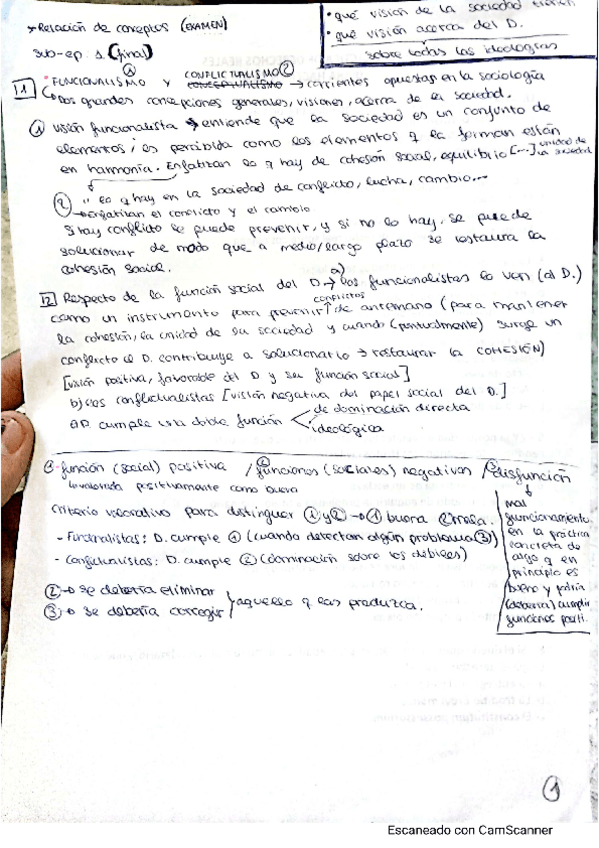 → Relación de conceptos (EXAMEN)
Sub-ep. 1. (final)
• qué visión de la sociedad tienen
• qué visión acerca del D.
sobre todas las ideologías
1.1 • FUNCIONALISMO ① y CONFLICTUALISMO ② → corrientes opuestas en la sociología
Dos grandes concepciones generales, visiones, acerca de la sociedad.
① visión funcionalista → entiende que la sociedad es un conjunto de
elementos; es percibida como los elementos q la forman están
en harmonía. Enfatizan lo q hay de cohesión social, equilibrio [...] unidad de la sociedad
② " lo q hay en la sociedad de conflicto, lucha, cambio...
→ enfatizan el conflicto y el cambio
Si hay conflicto se puede prevenir, y si no lo hay, se puede
solucionar de modo que a medio/largo plazo se restaura la
cohesión social.
1.2 Respecto de la función social del D. → a) los funcionalistas lo ven (al D.)
como un instrumento para prevenir conflictos de antemano (para mantener
la cohesión, la unidad de su sociedad y cuando (puntualmente) surge un
conflicto el D. contribuye a solucionarlo → restaurar la COHESIÓN)
[visión positiva, favorable del D y su función social]
b) los conflictualistas [visión negativa del papel social del D.]
El D. cumple una doble función < de dominación directa
ideológica
① función (social) positiva / ② funciones (sociales) negativas / ③ disfunción
↳ valorada positivamente como buena
Criterio valorativo para distinguir ① y ② → ① buena ② mala.
- Funcionalistas: D. cumple ① (cuando detectan algún problema ③)
- Conflictualistas: D. cumple ② (dominación sobre los débiles)
② → se debería eliminar
③ → se debería corregir } aquello q las produzca.
mal
funcionamiento
en la práctica
concreta de
algo q en
principio es
bueno y podría
(debería) cumplir
funciones positi.
①
Escaneado con CamScanner